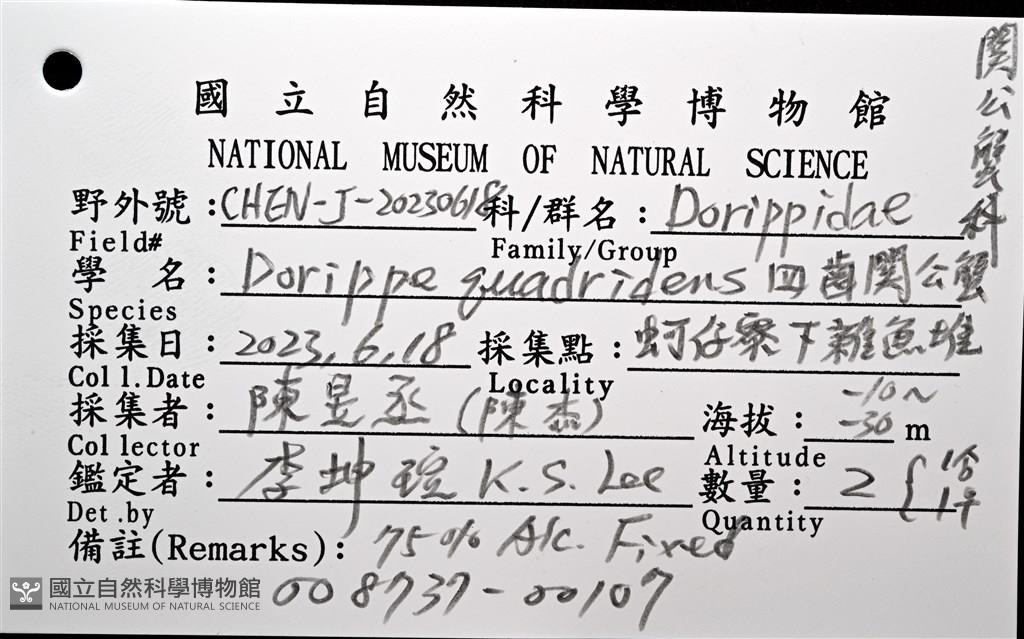 國立自然科學博物館
NATIONAL MUSEUM OF NATURAL SCIENCE
關公蟹科
野外號:CHEN-J-20230618 科/群名:Dorippidae
Field# Family/Group
學名:Dorippe quadridens 四齒關公蟹
Species
採集日:2023,6,18 採集點:蚵仔寮下雜魚堆
Coll.Date Locality
採集者:陳昱丞(陳杰) 海拔:-10~-30 m
Collector Altitude
鑑定者:李坤瑄 K.S. Lee 數量:2 { 1♂ 1♀
Det.by Quantity
備註(Remarks): 75% Alc. Fixed
008737-00107
國立自然科學博物館
NATIONAL MUSEUM OF NATURAL SCIENCE